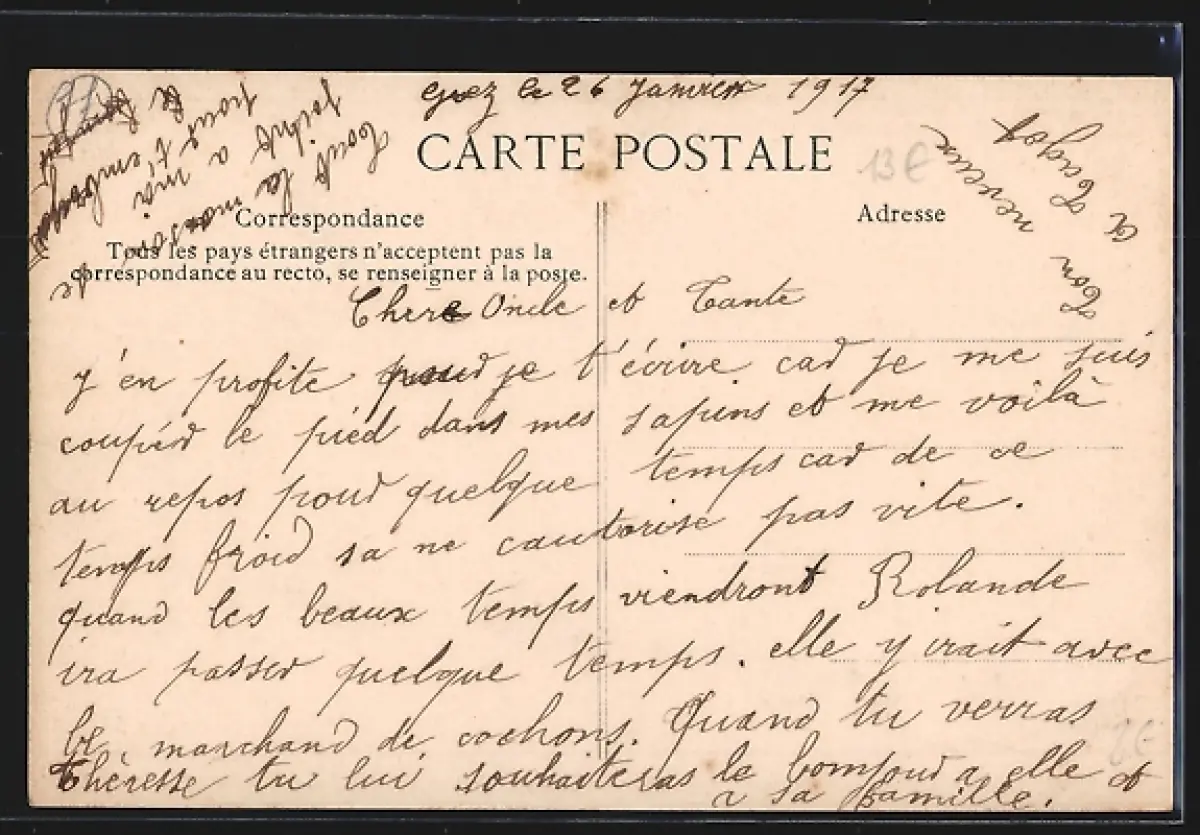 Grez le 26 Janvier 1917
CARTE POSTALE
13 €
Correspondance
Adresse
Tous les pays étrangers n'acceptent pas la
correspondance au recto, se renseigner à la poste.
Chere Oncle et Tante
y'en profite pour je t'écrire car je me suis
coupér le pied dans mes sapins et me voilà
au repos pour quelque temps car de ce
temps froid sa ne cautorise pas vite.
quand les beaux temps viendront Rolande
ira passer quelque temps. elle y irait avec
le marchand de cochons. Quand tu verras
Théresse tu lui souhaiteras le bomjour a elle et
a sa famille.
Tout la maison se
joint a moi
pour t'embrasser
le
Ton
neveux
2€